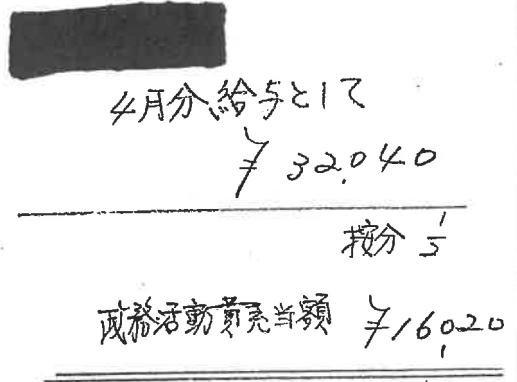 4月分給与として
¥32,040
按分 1/2
政務活動費充当額 ¥16,020